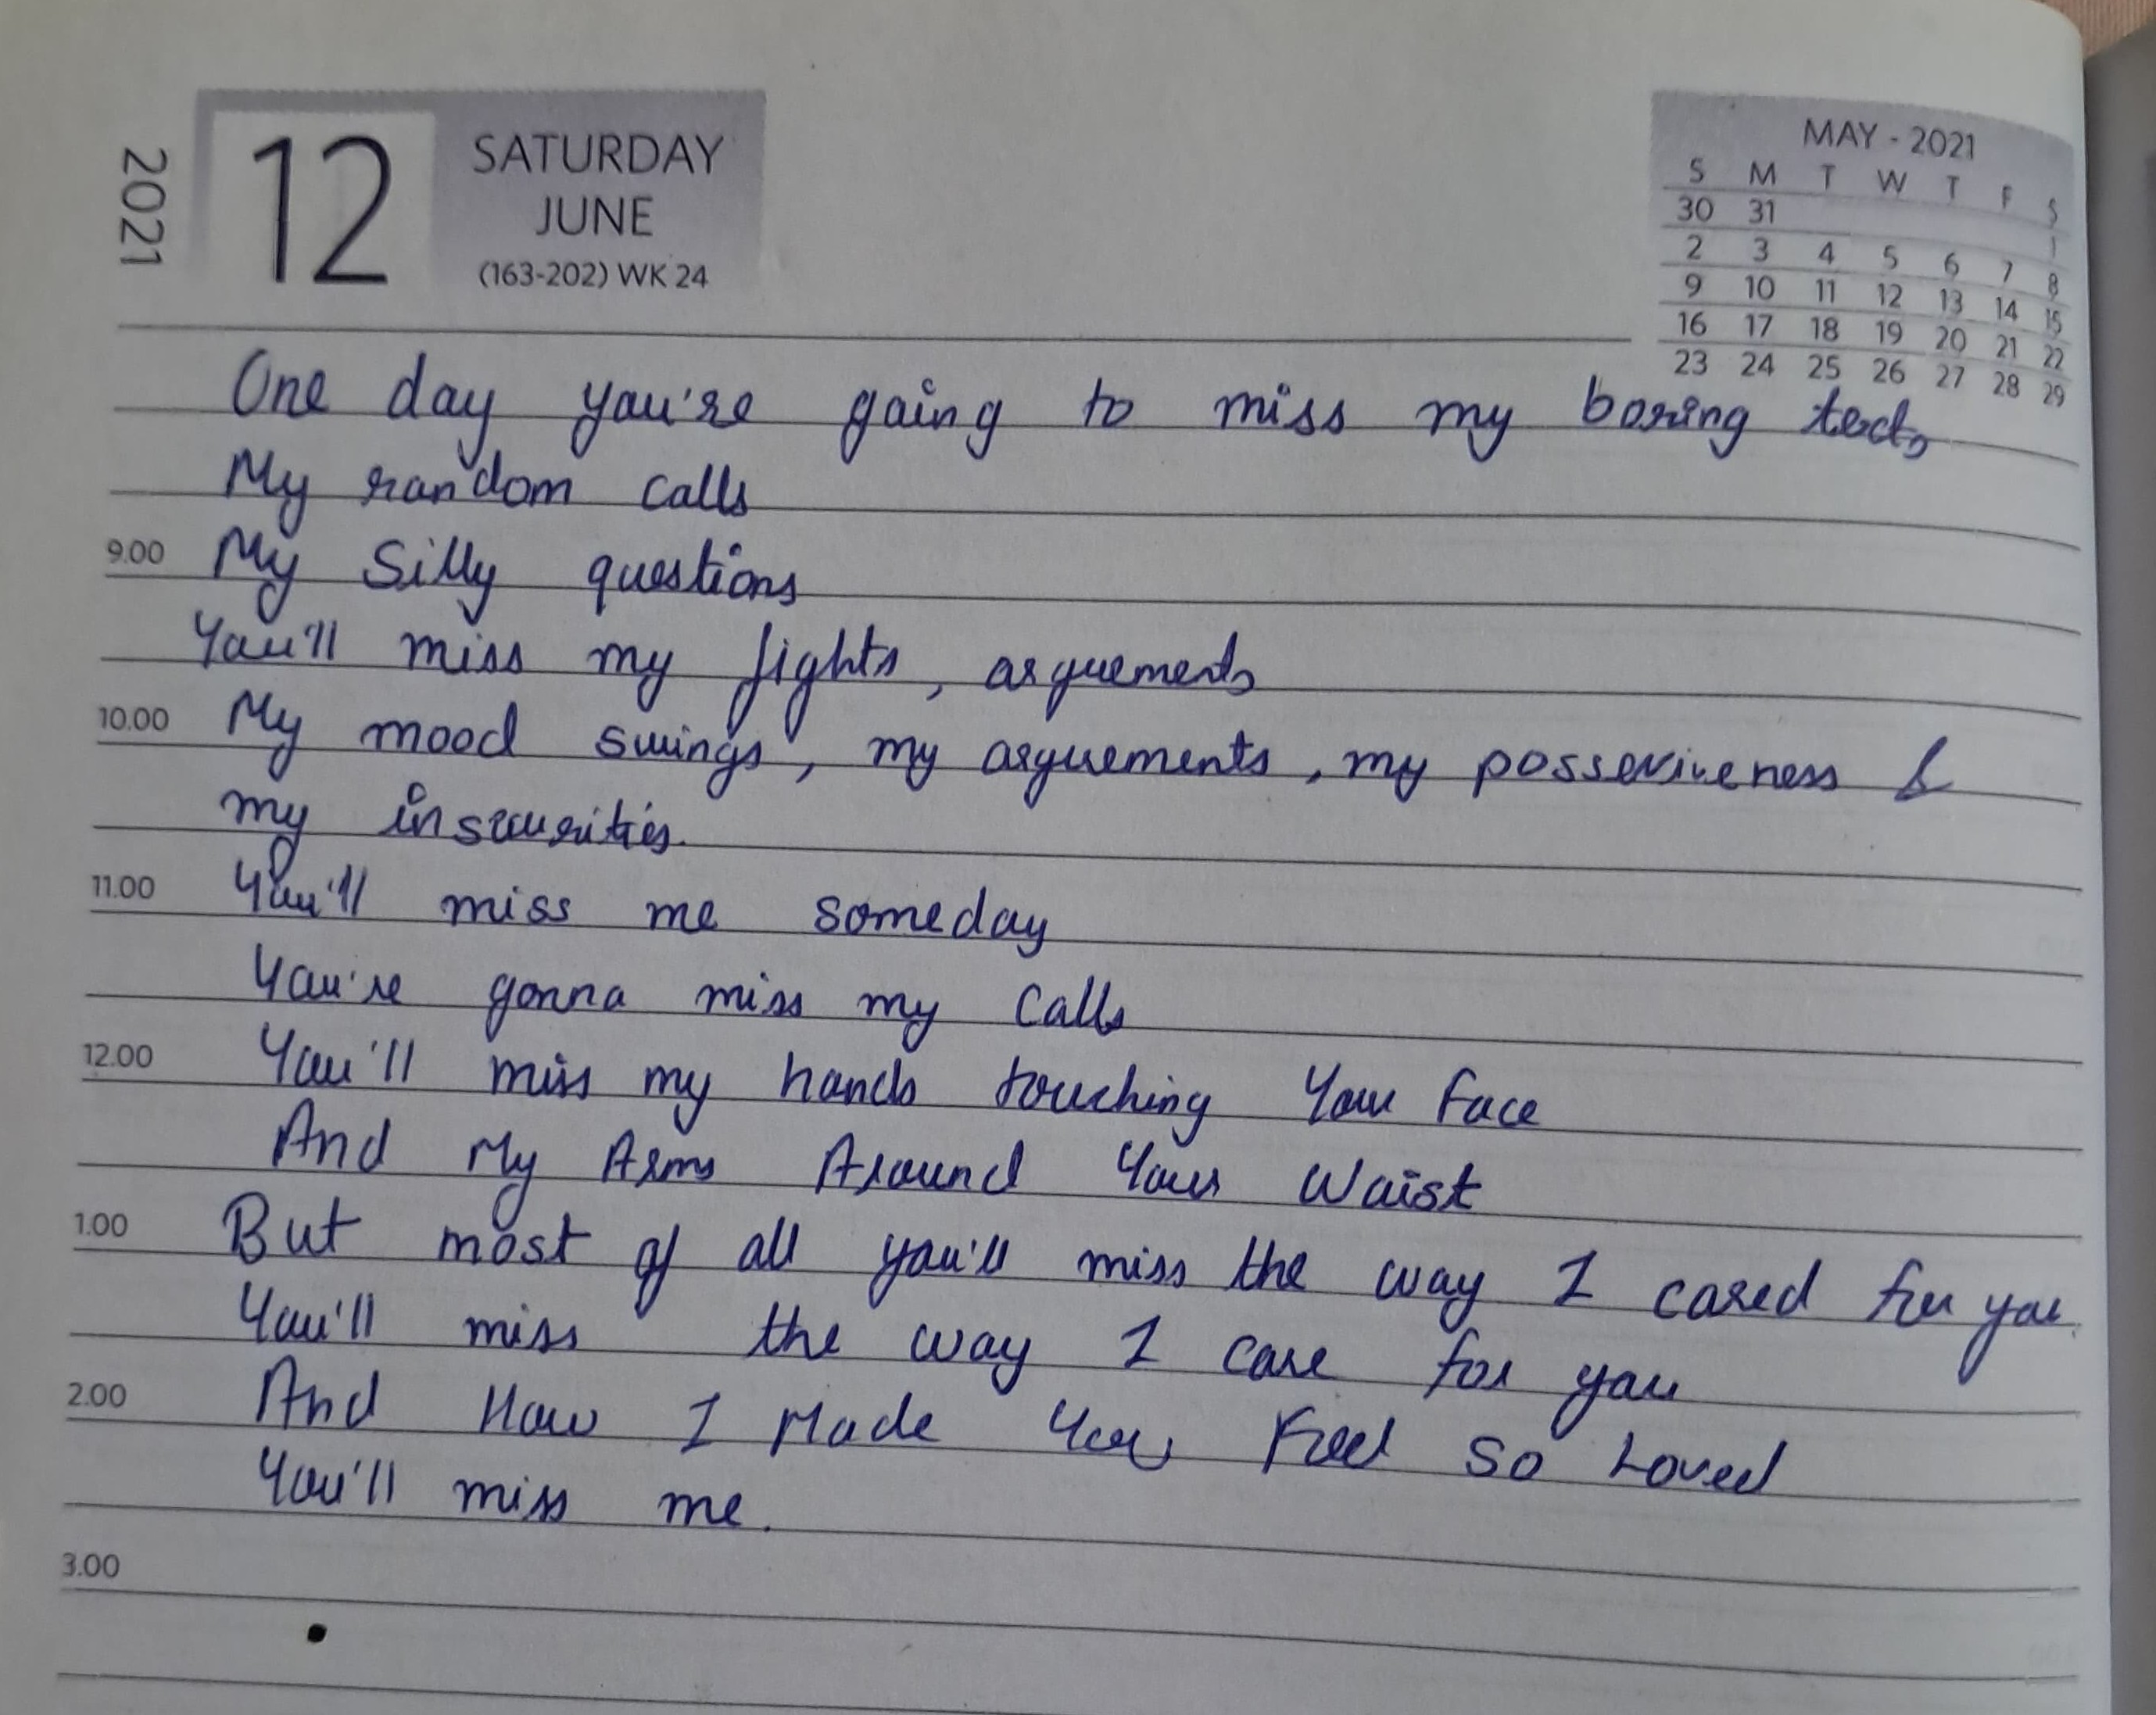 2021
12
SATURDAY
JUNE
(163-202) WK 24
MAY - 2021
S M T W T F S
30 31 1
2 3 4 5 6 7 8
9 10 11 12 13 14 15
16 17 18 19 20 21 22
23 24 25 26 27 28 29
One day you're going to miss my boring texts
My random calls
9.00 My Silly questions
You'll miss my fights, arguements
10.00 My mood swings, my arguements, my possesiveness &
my insecurities.
11.00 You'll miss me someday
You're gonna miss my calls
12.00 You'll miss my hands touching Your face
And My Arms Around Your Waist
1.00 But most of all you'll miss the way I cared for you.
You'll miss the way I care for you
2.00 And How I Made You Feel So Loved
You'll miss me.
3.00